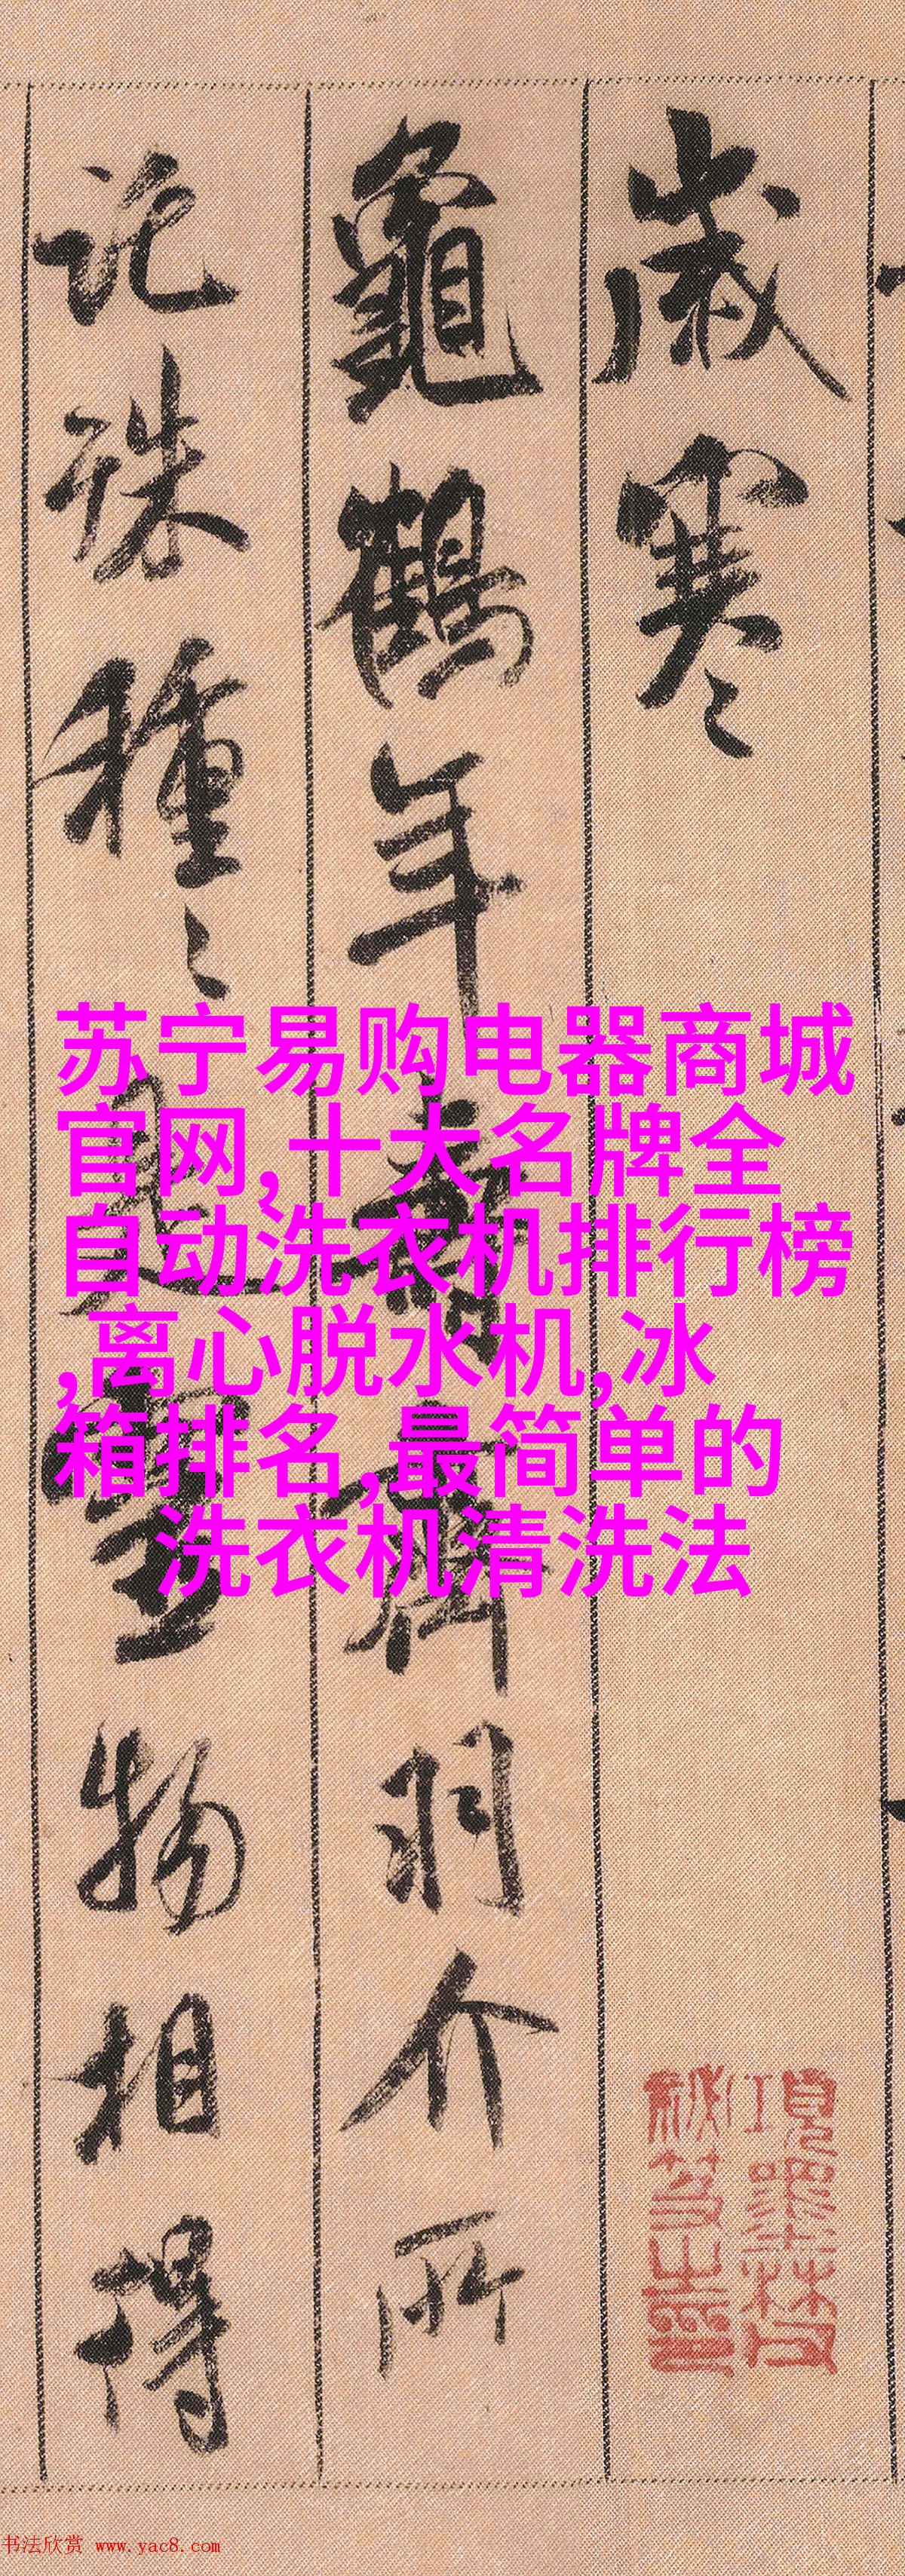 歲寒
龜鶴年壽齊羽介所
託殊種〻是靈物相得
項墨林父
祕笈之印
苏宁易购电器商城
官网,十大名牌全
自动洗衣机排行榜
,离心脱水机,冰
箱排名,最简单的
洗衣机清洗法
书法欣赏 www.yac8.com